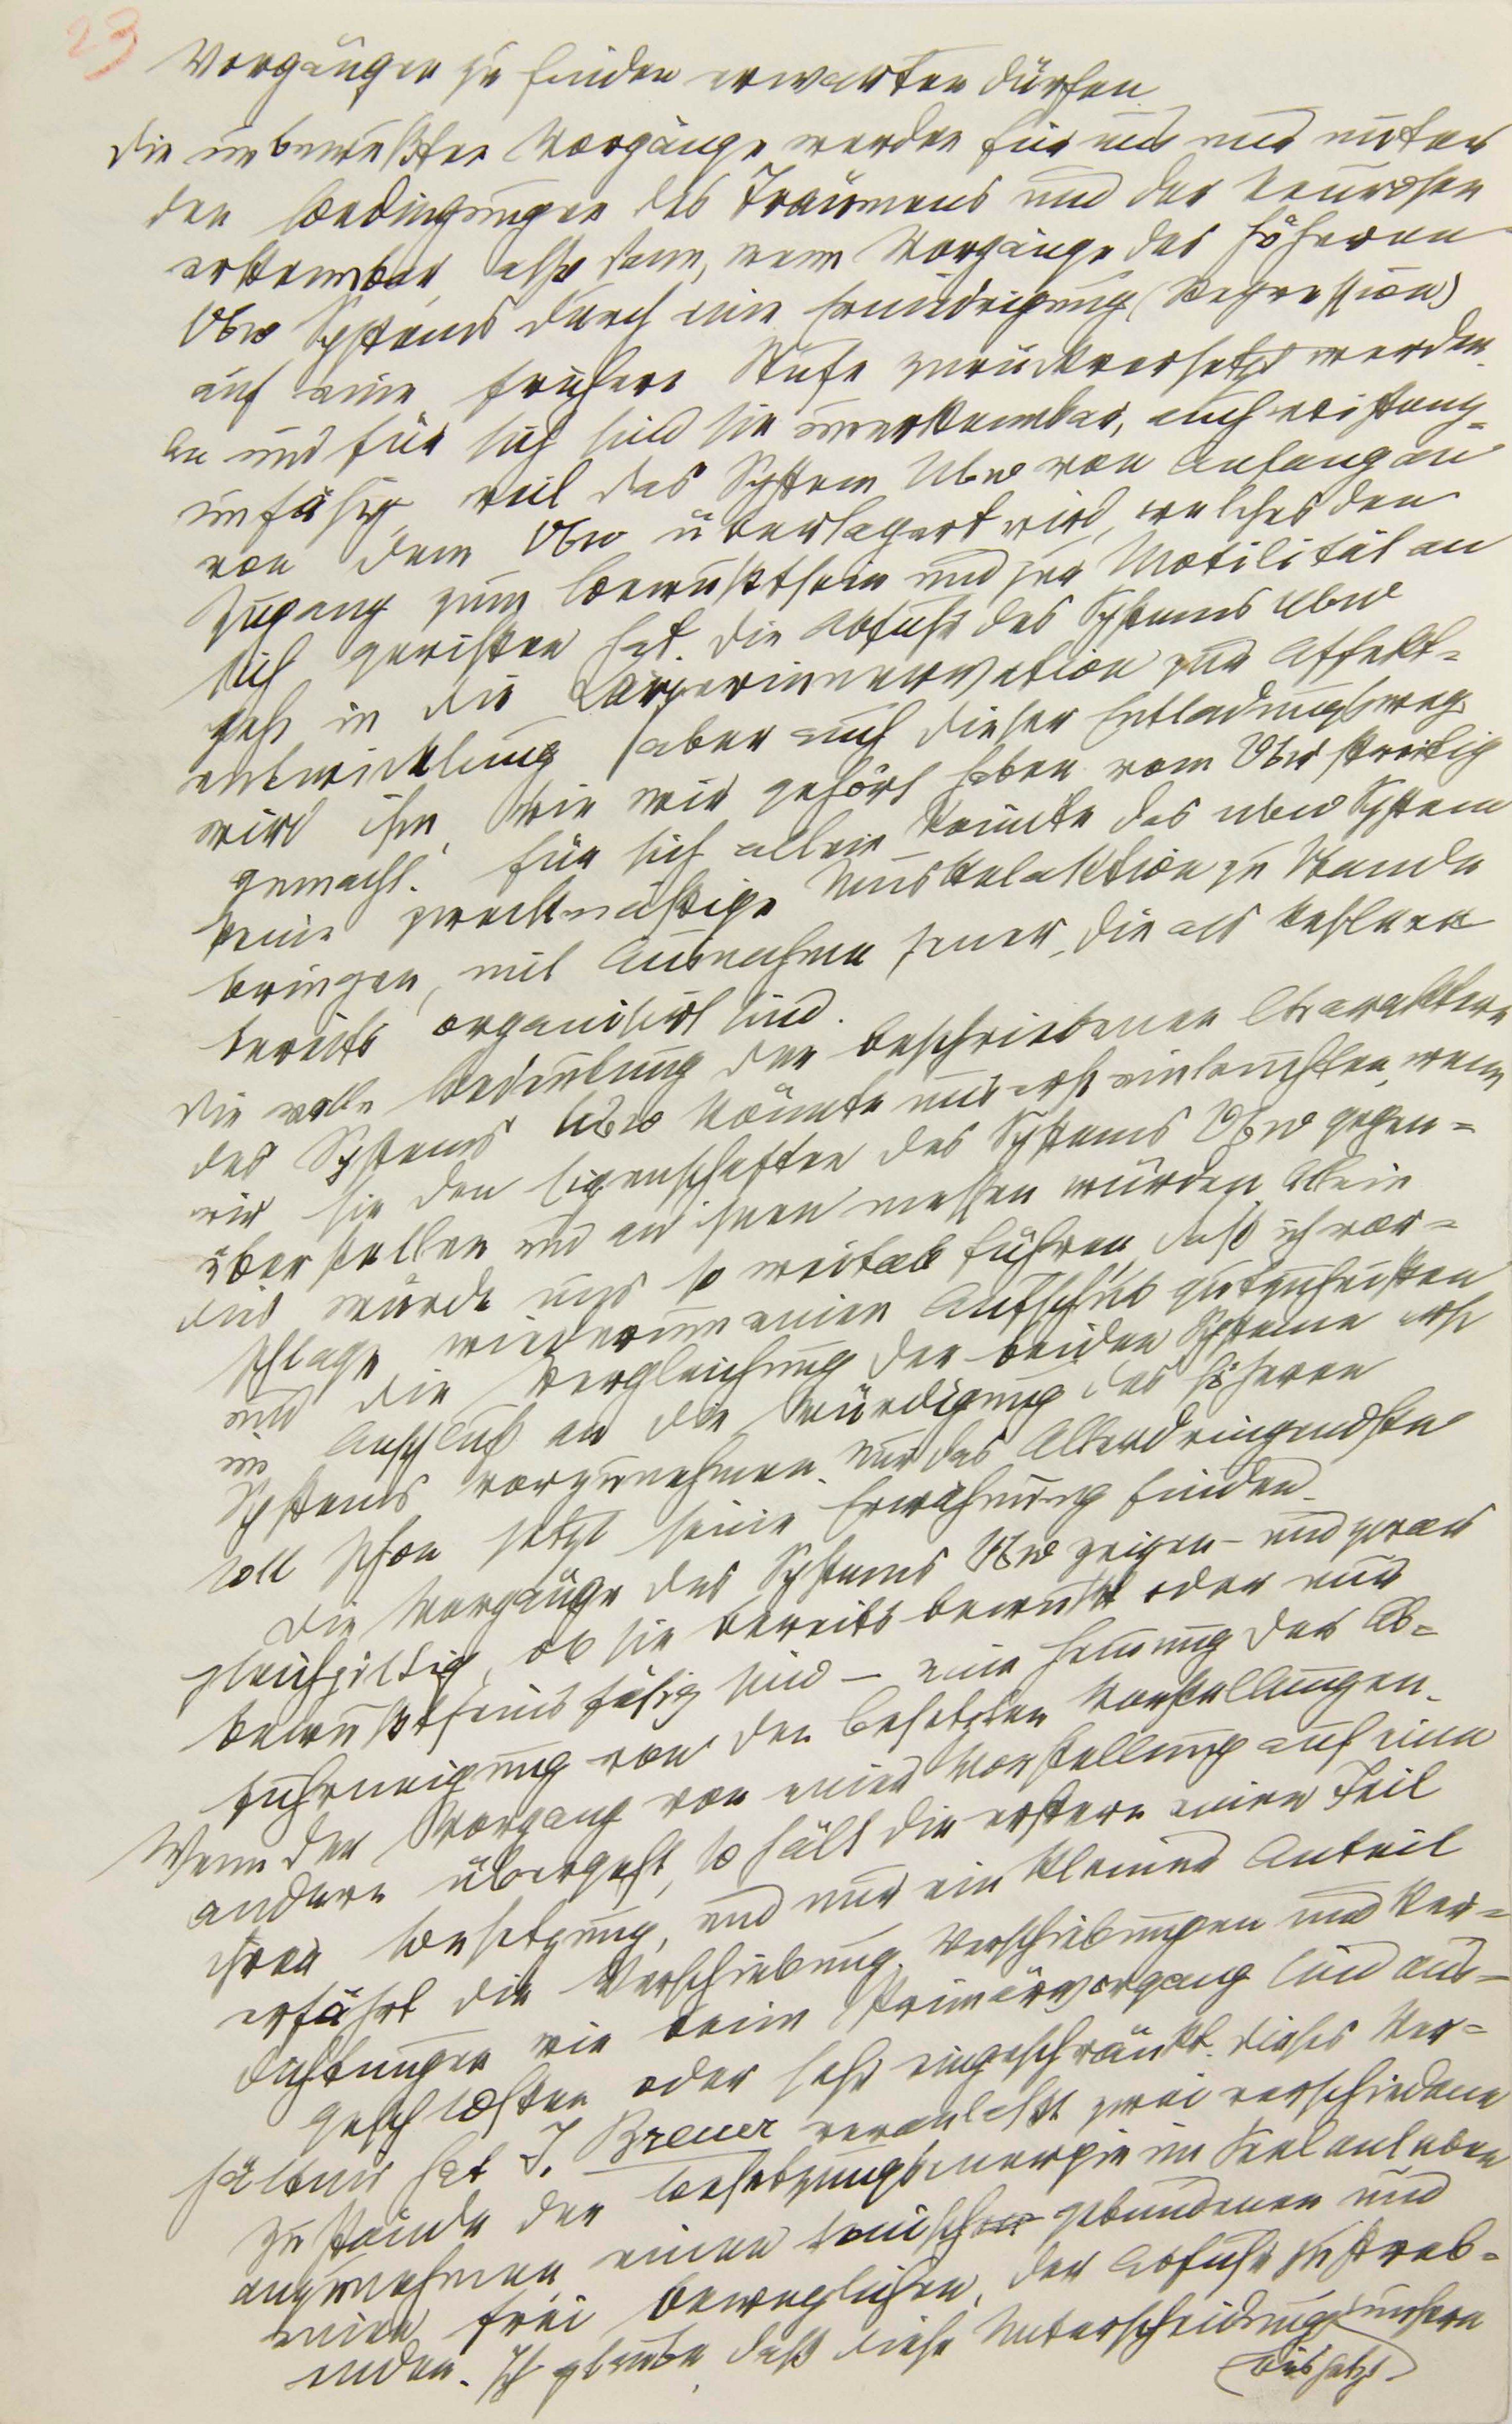 23
Vorgängen zu finden erwarten dürfen.
Die unbewußten Vorgänge werden für uns nur unter
den Bedingungen des Träumens und der Neurosen
erkennbar, also dann, wenn Vorgänge des höheren
Vbw Systems durch eine Erniedrigung (Regression)
auf eine frühere Stufe zurückversetzt werden.
An und für sich sind sie unerkennbar, auch existenz-
unfähig, weil das System Ubw von Anfang an
von dem Vbw überlagert wird, welches den
Zugang zum Bewußtsein und zur Motilität an
sich gerissen hat. Die Abfuhr des Systems Ubw
geht in die Körperinnervation zur Affekt-
entwicklung, aber auch dieser Entladungsweg
wird ihm, wie wir gehört haben vom Vbw streitig
gemacht. Für sich allein könnte das ubw System
keine zweckmäßige Muskelaktion zu Stande
bringen, mit Ausnahme jener, die als Reflexe
bereits organisirt sind.
Die volle Bedeutung der beschriebenen Charaktere
des Systems Ubw könnte uns erst einleuchten, wenn
wir sie den Eigenschaften des Systems Vbw gegen-
über stellen und an ihnen messen würden. Allein
dies würde uns so weitab führen, daß ich vor-
schlage, wiederum einen Aufschub gutzuheißen
und die Vergleichung der beiden Systeme erst
im Anschluß an die Würdigung des höheren
Systems vorzunehmen. Nur das Allerdringendste
soll schon jetzt seine Erwähnung finden.
Die Vorgänge des Systems Vbw zeigen – und zwar
gleichgiltig, ob sie bereits bewußt oder nur
bewußtseinsfähig sind – eine Hemmung der Ab-
fuhrneigung von den besetzten Vorstellungen.
Wenn der Vorgang von einer Vorstellung auf eine
andere übergeht, so hält die erstere einen Teil
ihrer Besetzung, und nur ein kleiner Anteil
erfährt die Verschiebung. Verschiebungen und Ver-
dichtungen wie beim Primärvorgang sind aus-
geschlossen oder sehr eingeschränkt. Dieses Ver-
hältnis hat J. Breuer veranlaßt zwei verschiedene
Zustände der Besetzungsenergie im Seelenleben
anzunehmen, einen tonisch gebundenen und
einen frei beweglichen, der Abfuhr zustreb-
enden. Ich glaube, daß diese Unterscheidung unsere